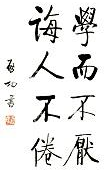 學而不厭
誨人不倦
啟功書